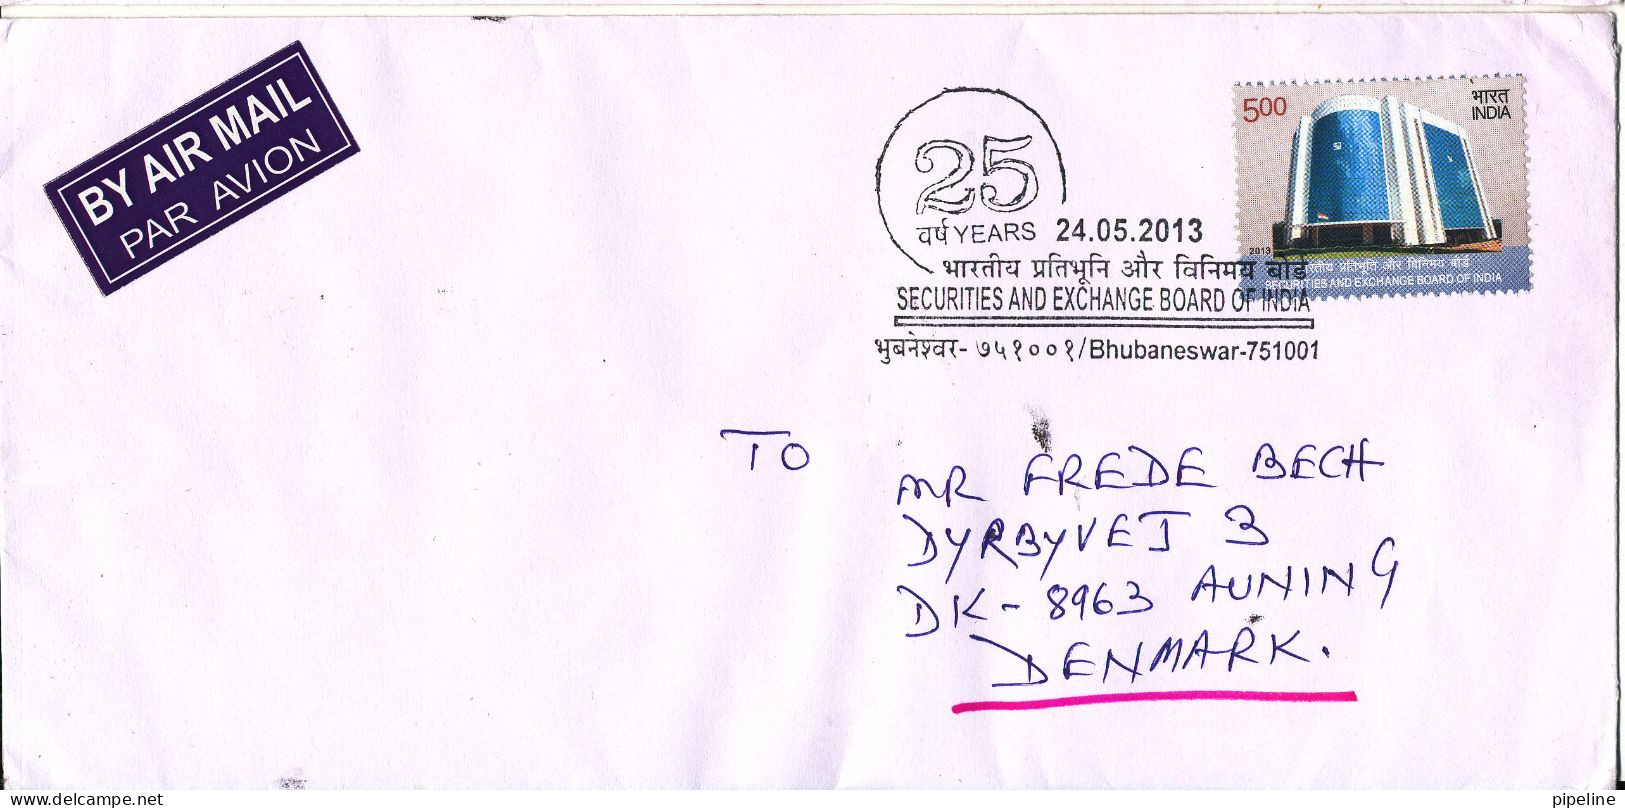 BY AIR MAIL
PAR AVION
25
वर्ष YEARS 24.05.2013
भारतीय प्रतिभूति और विनिमय बोर्ड
SECURITIES AND EXCHANGE BOARD OF INDIA
भुबनेश्वर- ७५१००१/Bhubaneswar-751001
500
भारत
INDIA
2013
प्रतिभूति और विनिमय बोर्ड
SECURITIES AND EXCHANGE BOARD OF INDIA
TO
MR FREDE BECH
DYRBYVEJ 3
DK-8963 AUNING
DENMARK.
www.delcampe.net
pipeline